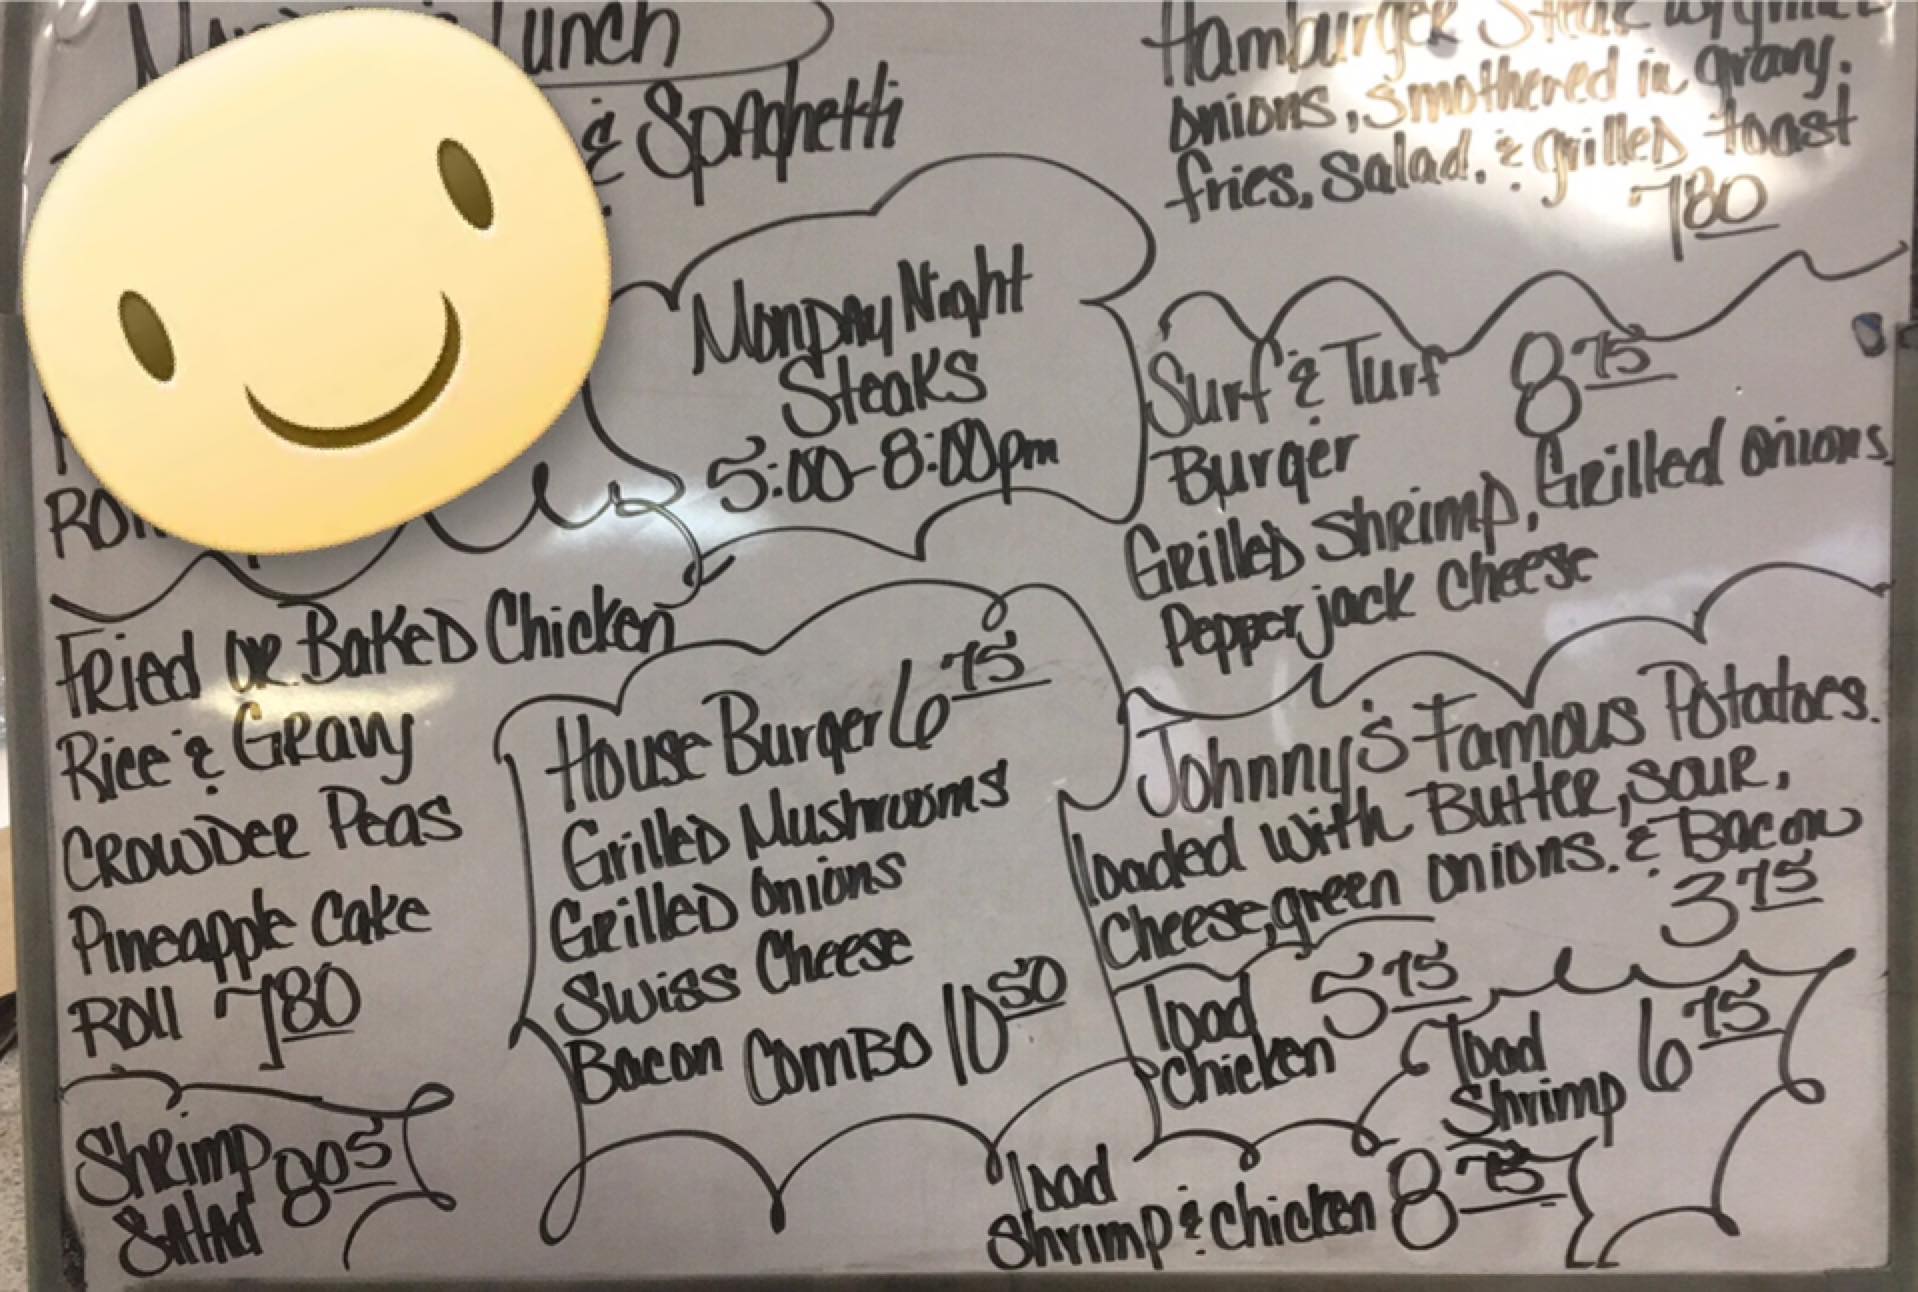 Lunch
& Spaghetti
Monday Night
Steaks
5:00-8:00pm
Fried or Baked Chicken
Rice & Gravy
Crowder Peas
Pineapple Cake
Roll 7 80
Shrimp 8 05
Salad
House Burger 6 75
Grilled Mushrooms
Grilled Onions
Swiss Cheese
Bacon Combo 10 50
Hamburger Steak
onions, smothered in gravy.
fries, salad, & grilled toast
7 80
Surf & Turf 8 75
Burger
Grilled Shrimp, Grilled onions
Pepper jack Cheese
Johnny's Famous Potatoes.
loaded with Butter, sour,
Cheese, green onions. & Bacon
3 75
load 5 75
chicken
load 6 75
Shrimp
load
Shrimp & chicken 8 75